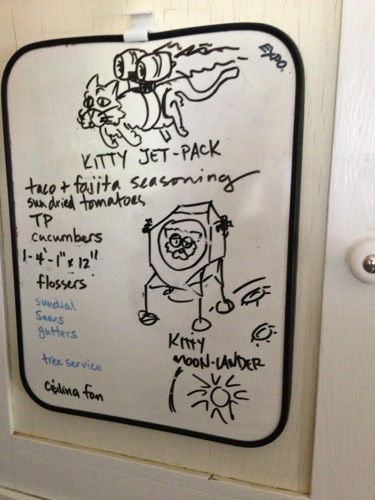 EXPO
KITTY JET-PACK
taco + fajita seasoning
sundried tomatoes
TP
cucumbers
1-4'-1"x12"
flossers
sundial
Sears
gutters
KITTY
MOON-LANDER
tree service
Ceiling fan